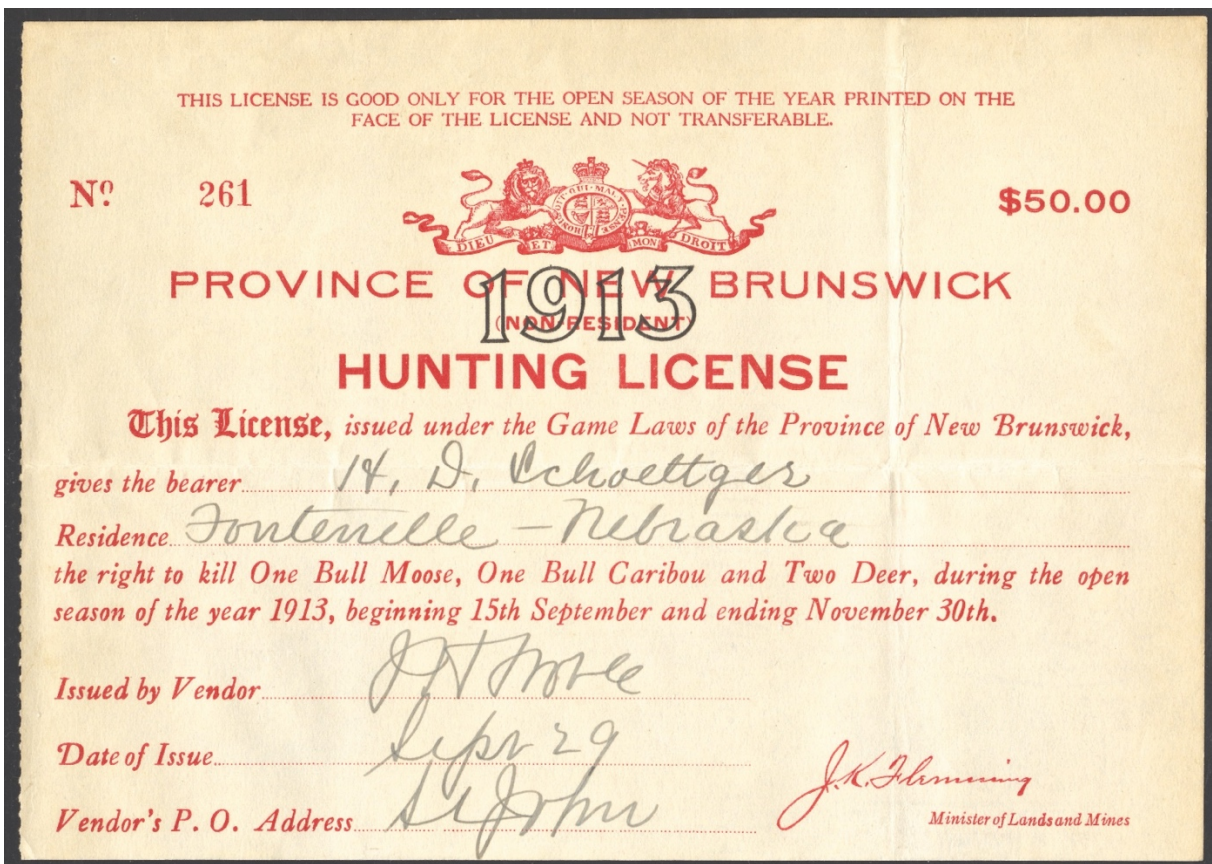 THIS LICENSE IS GOOD ONLY FOR THE OPEN SEASON OF THE YEAR PRINTED ON THE
FACE OF THE LICENSE AND NOT TRANSFERABLE.
Nº 261
$50.00
HONI SOIT QUI MAL Y PENSE
DIEU ET MON DROIT
PROVINCE OF NEW BRUNSWICK
1913
(NON-RESIDENT)
HUNTING LICENSE
This License, issued under the Game Laws of the Province of New Brunswick,
gives the bearer H. D. Schoettger
Residence Fontenelle - Nebraska
the right to kill One Bull Moose, One Bull Caribou and Two Deer, during the open
season of the year 1913, beginning 15th September and ending November 30th.
Issued by Vendor
Date of Issue Sept 29
Vendor's P. O. Address St John
J.K. Flemming
Minister of Lands and Mines